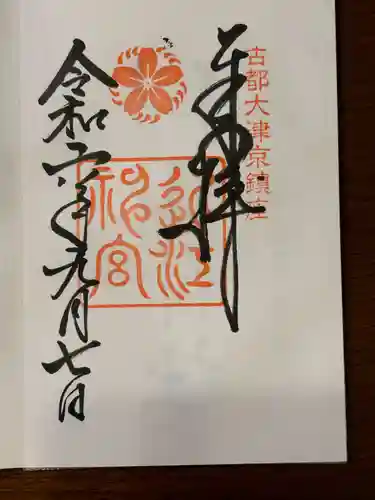 古都大津京鎮座
奉拝
近江神宮
令和六年九月七日